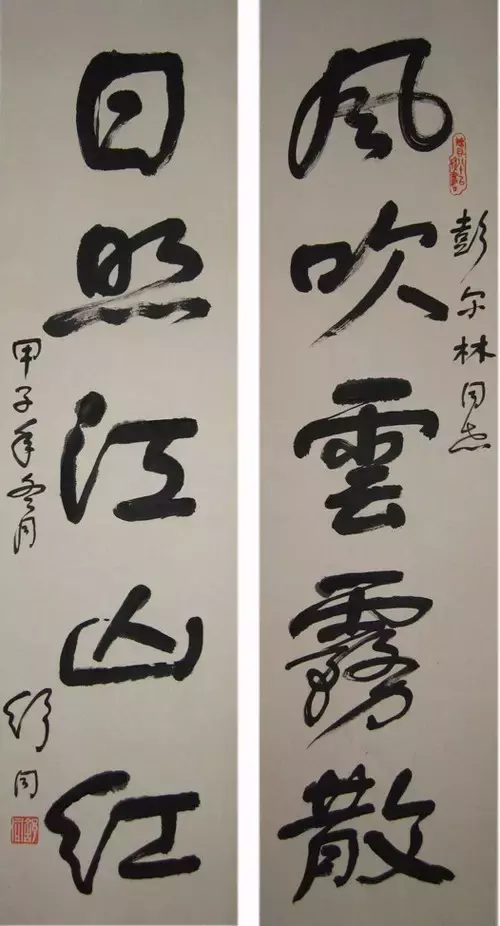 彭尔林同志
風吹雲霧散
日照江山红
甲子年冬月
舒同